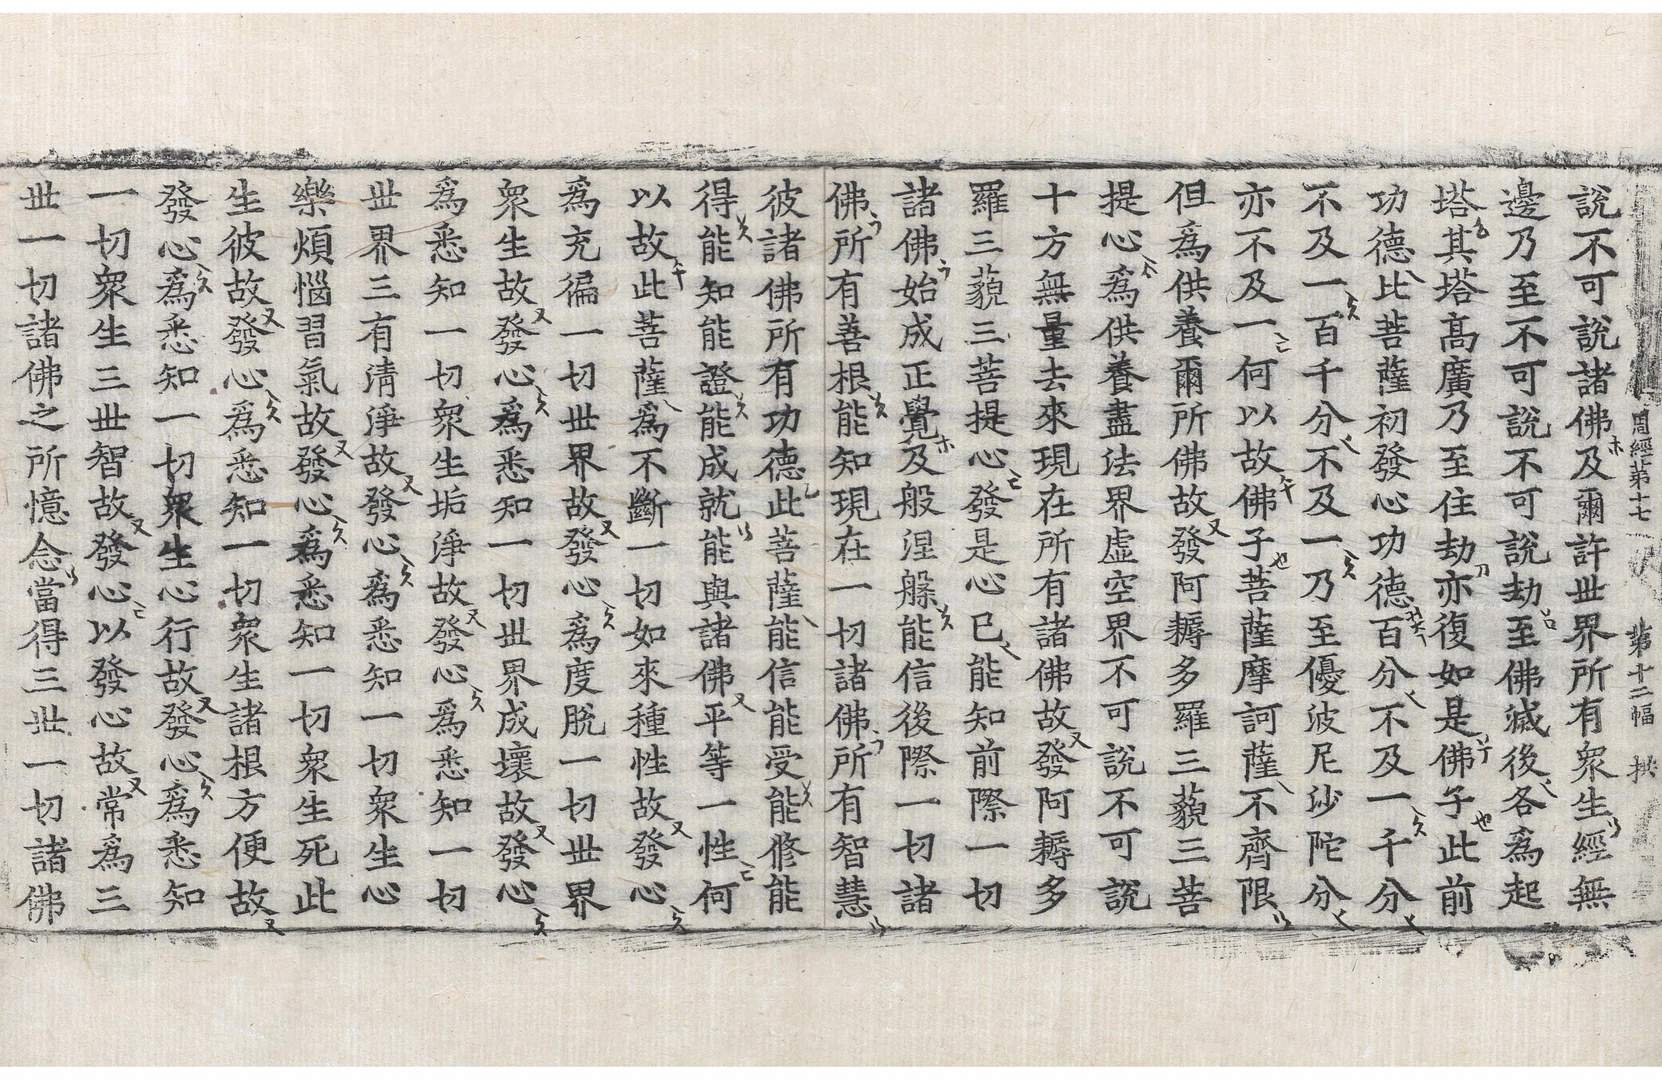 周經第十七　第十二幅　拱
說不可說諸佛及爾許世界所有衆生經無
邊乃至不可說不可說劫至佛滅後各爲起
塔其塔高廣乃至住劫亦復如是佛子此前
功德比菩薩初發心功德百分不及一千分
不及一百千分不及一乃至優波尼沙陀分
亦不及一何以故佛子菩薩摩訶薩不齊限
但爲供養爾所佛故發阿耨多羅三藐三菩
提心爲供養盡法界虛空界不可說不可說
十方無量去來現在所有諸佛故發阿耨多
羅三藐三菩提心發是心已能知前際一切
諸佛始成正覺及般涅槃能信後際一切諸
佛所有善根能知現在一切諸佛所有智慧
彼諸佛所有功德此菩薩能信能受能修能
得能知能證能成就能與諸佛平等一性何
以故此菩薩爲不斷一切如來種性故發心
爲充徧一切世界故發心爲度脫一切世界
衆生故發心爲悉知一切世界成壞故發心
爲悉知一切衆生垢淨故發心爲悉知一切
世界三有清淨故發心爲悉知一切衆生心
樂煩惱習氣故發心爲悉知一切衆生死此
生彼故發心爲悉知一切衆生諸根方便故
發心爲悉知一切衆生心行故發心爲悉知
一切衆生三世智故發心以發心故常爲三
世一切諸佛之所憶念當得三世一切諸佛